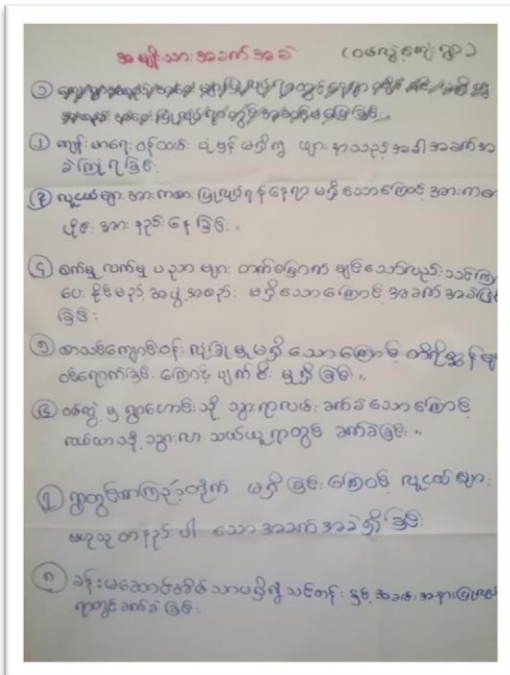 အမျိုးသား အခက်အခဲ (ဝဲလွဲ့ကျေးရွာ)
၁
၂ ကျန်းမာရေးဝန်ထမ်း ပုံမှန်မရှိ၍ ဖျားနာသည့်အခါ အခက်အ
ခဲကြုံရခြင်း
၃ လူငယ်များ အားကစားပြုလုပ်ရန်နေရာ မရှိသောကြောင့် အားကစား
ပိုင်း အားနည်းနေခြင်း။
၄ စက်မှု လက်မှု ပညာများ တတ်မြောက် ချင်သော်လည်း သင်ကြား
ပေးနိုင်မည့် အဖွဲ့အစည်း မရှိသောကြောင့် အခက်အခဲဖြစ်
ခြင်း
၅ စာသင်ကျောင်းဝန်း လုံခြုံမှုမရှိသောကြောင့် တိရိစ္ဆာန်များ
ဝင်ရောက်ခြင်းကြောင့် ပျက်စီးမှုရှိခြင်း။
၆ မှ ရွာဟောင်းသို့ သွားရာလမ်း ခက်ခဲသောကြောင့်
လယ်ယာသို့ သွားလာ သယ်ယူရာတွင် ခက်ခဲခြင်း။
၇ ရွာတွင် စာကြည့်တိုက် မရှိခြင်းကြောင့် လူငယ်များ
ဗဟုသုတနည်းပါးသော အခက်အခဲရှိခြင်း
၈ ခန်းမဆောင် မရှိ၍ သင်တန်းနှင့် အခမ်းအနားပြုလုပ်
ရာတွင်ခက်ခဲခြင်း